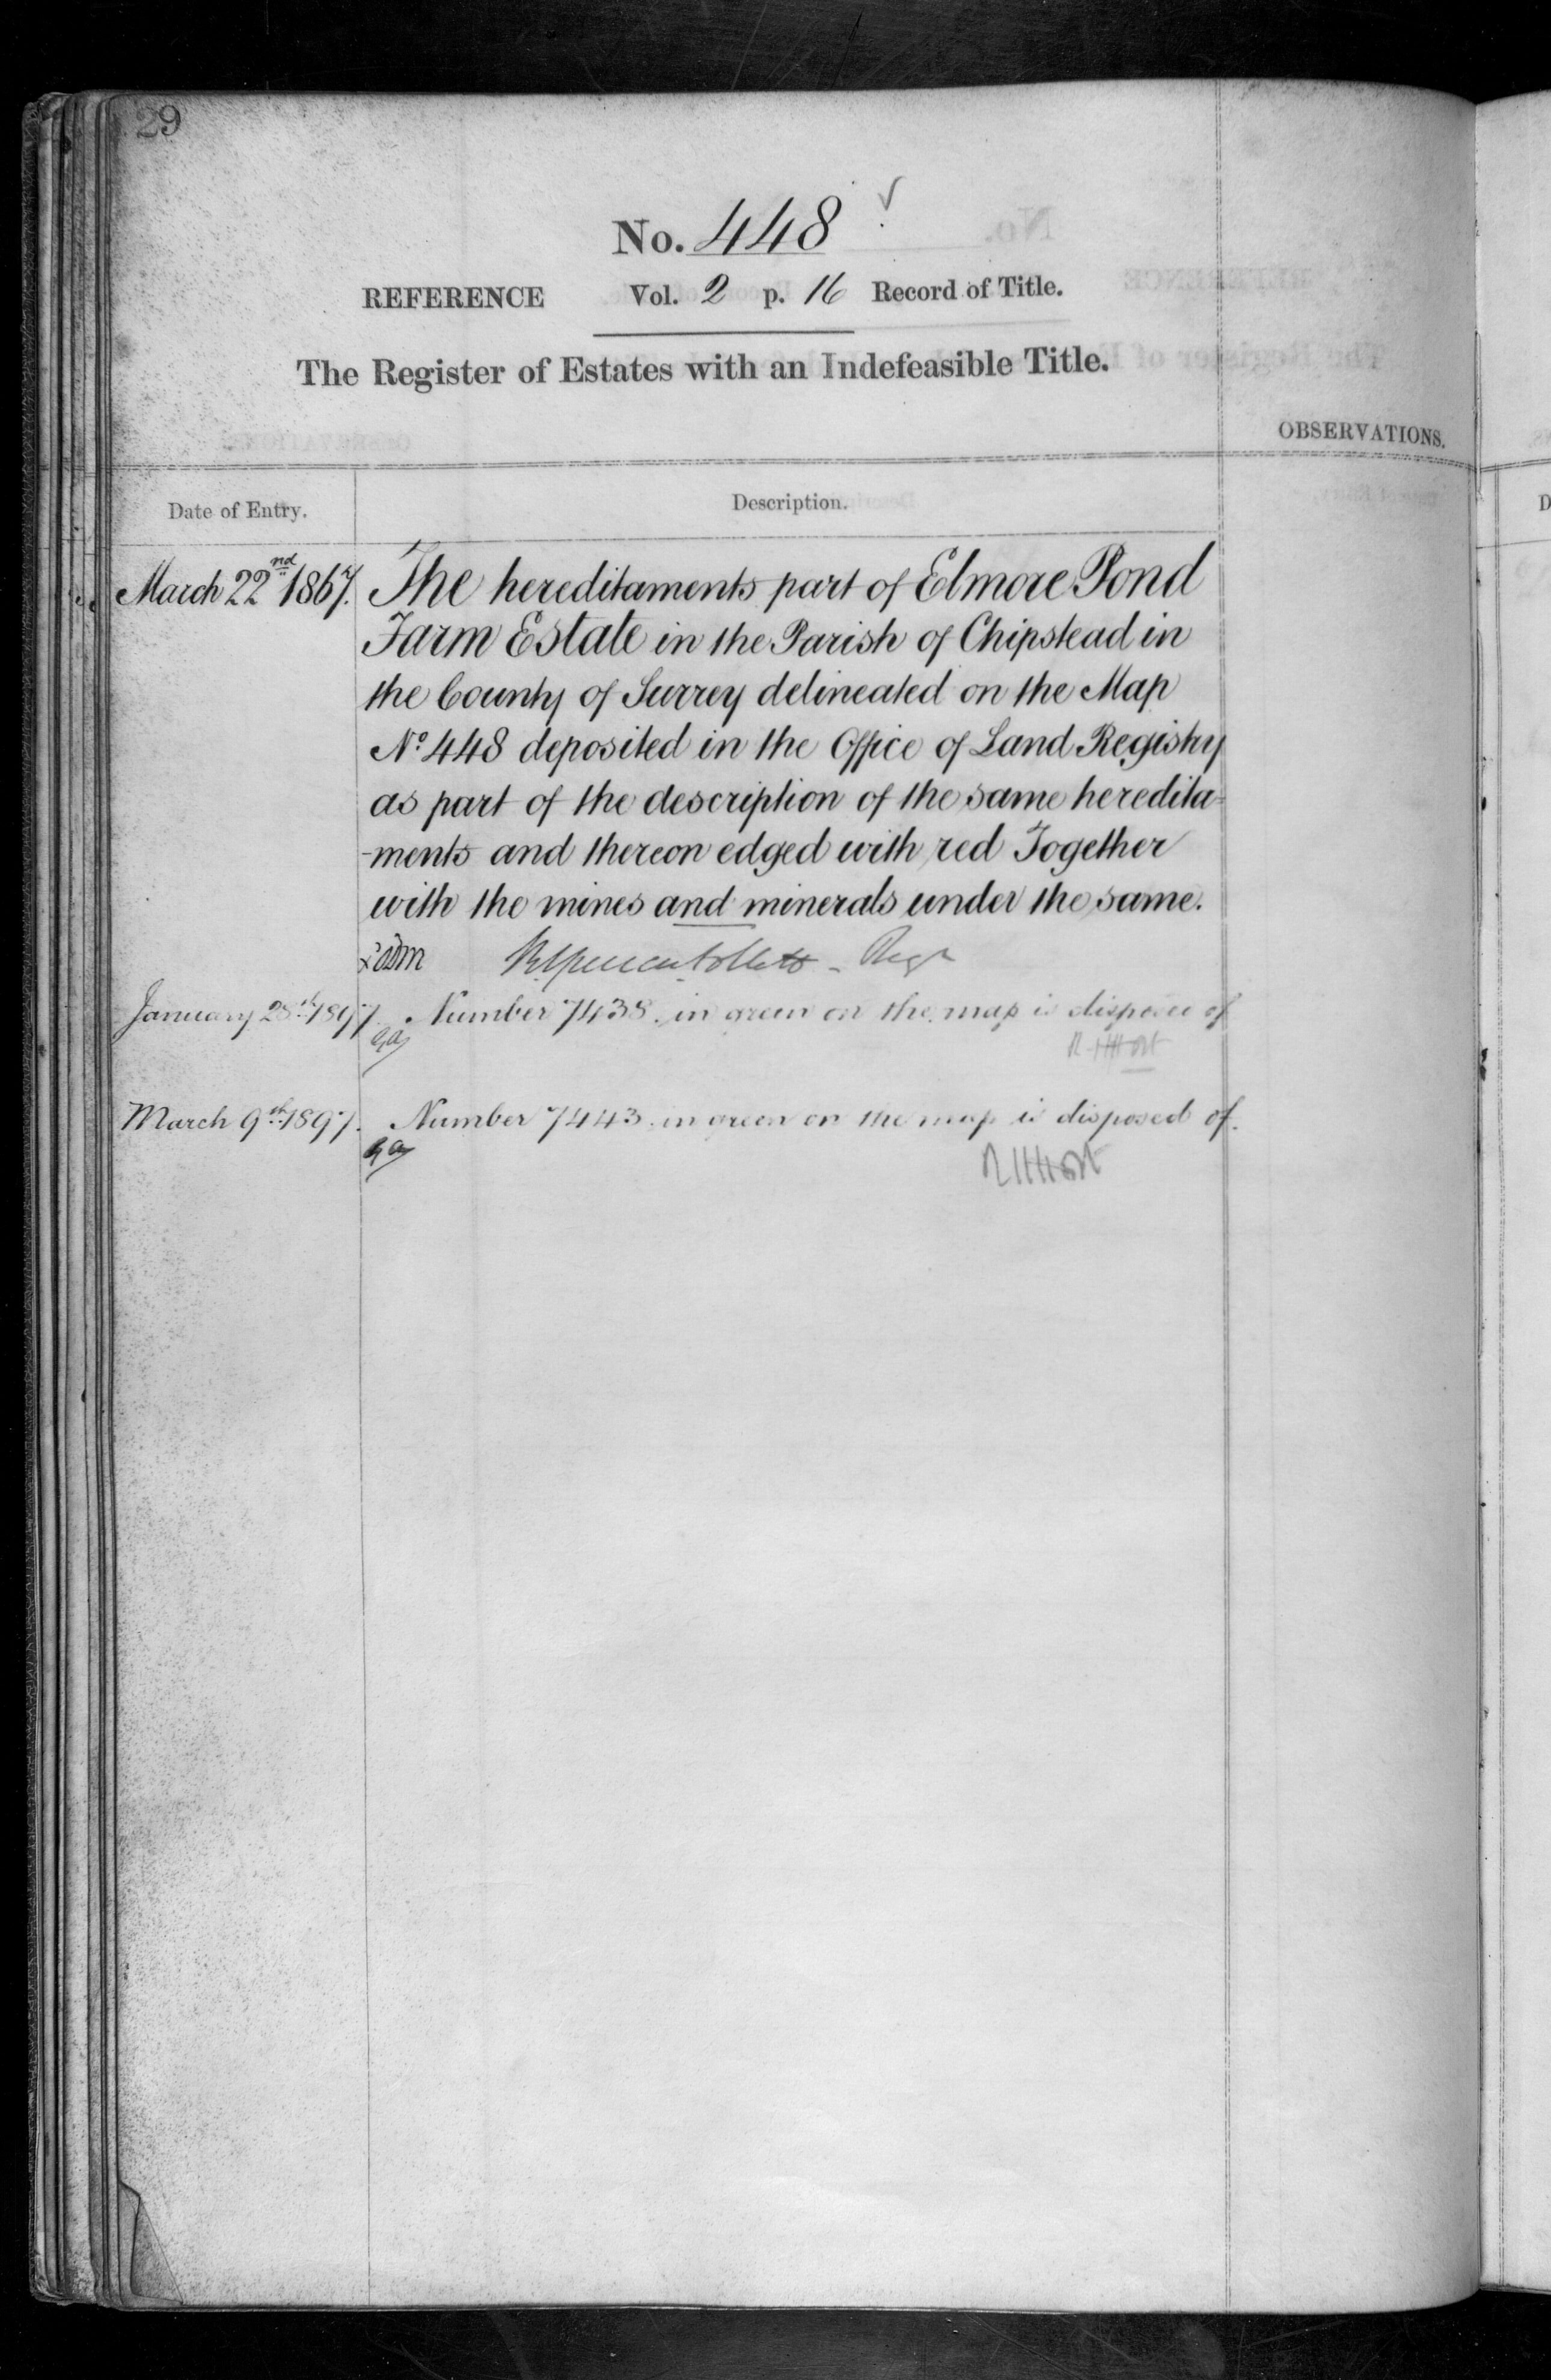 29
No. 448
REFERENCE Vol. 2 p. 16 Record of Title.
The Register of Estates with an Indefeasible Title.
OBSERVATIONS.
Date of Entry. Description.
March 22nd 1867. The hereditaments part of Elmore Pond
Farm Estate in the Parish of Chipstead in
the County of Surrey delineated on the Map
No 448 deposited in the Office of Land Registry
as part of the description of the same heredita=
-ments and thereon edged with red Together
with the mines and minerals under the same.
Regr
January 28th 1897. Number 7438. in green on the map is disposed of
March 9th 1897. Number 7443. in green on the map is disposed of.